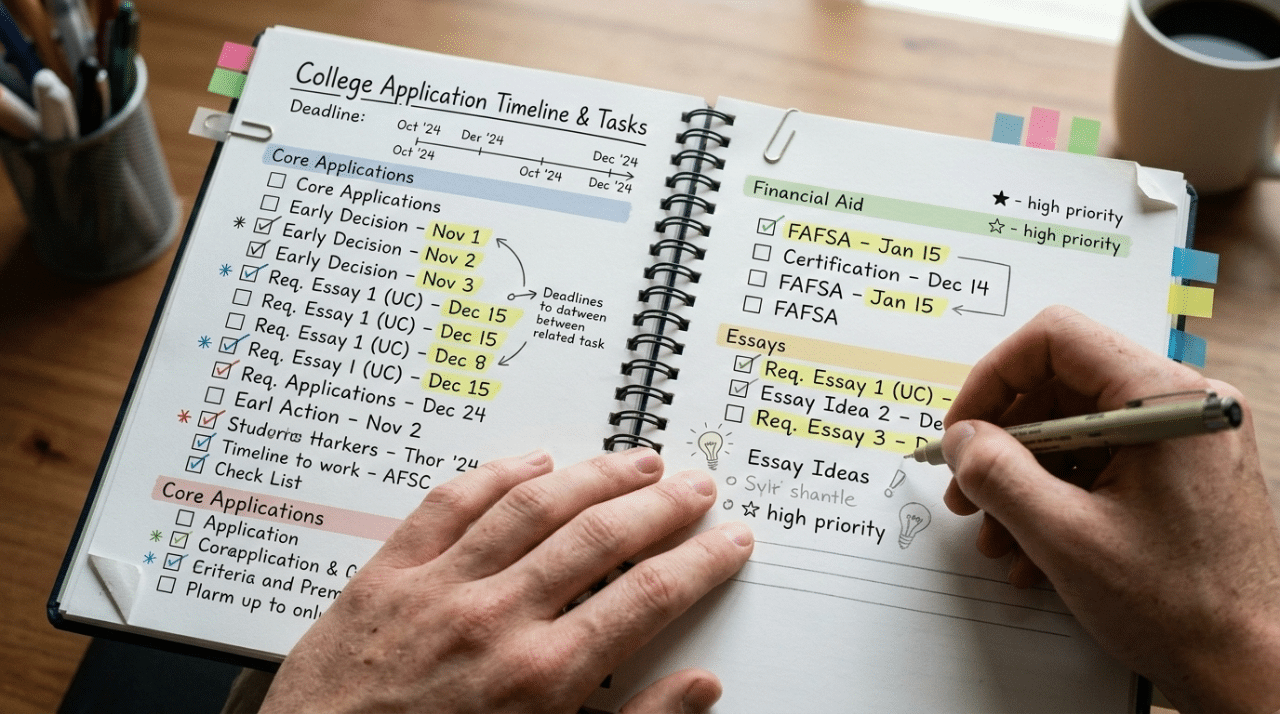 College Application Timeline & Tasks
Deadline:
Oct '24 Der '24 Dec '24
Oct '24 Oct '24 Dec '24
Core Applications
Core Applications
Early Decision – Nov 1
Early Decision – Nov 2
Early Decision – Nov 3
Req. Essay 1 (UC) – Dec 15
Req. Essay 1 (UC) – Dec 15
Req. Essay 1 (UC) – Dec 8
Req. Essay 1 (UC) – Dec 15
Req. Applications – Dec 24
Earl Action – Nov 2
Harkers – Thor '24
Timeline to work – AFSC
Check List
Deadlines
to datween
between
related task
Core Applications
Application
Corapplication & C
Eriteria and Prem
Plarm up to onl
Financial Aid
★ - high priority
☆ - high priority
FAFSA – Jan 15
Certification – Dec 14
FAFSA – Jan 15
FAFSA
Essays
Req. Essay 1 (UC) –
Essay Idea 2 – De
Req. Essay 3 – D
Essay Ideas
shantle
☆ high priority